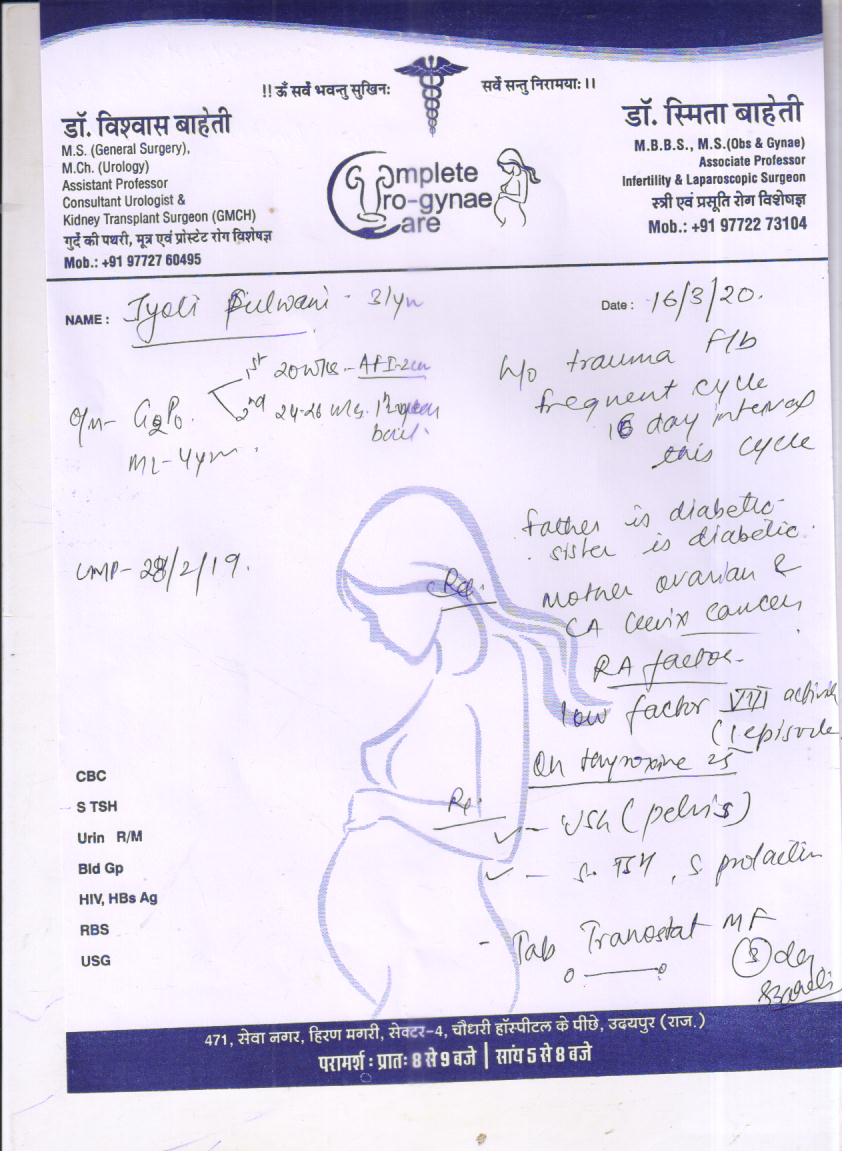 !! ॐ सर्वे भवन्तु सुखिनः सर्वे सन्तु निरामयाः ।।
डॉ. विश्वास बाहेती
M.S. (General Surgery),
M.Ch. (Urology)
Assistant Professor
Consultant Urologist &
Kidney Transplant Surgeon (GMCH)
गुर्दे की पथरी, मूत्र एवं प्रोस्टेट रोग विशेषज्ञ
Mob.: +91 97727 60495
Complete
Uro-gynae
Care
डॉ. स्मिता बाहेती
M.B.B.S., M.S.(Obs & Gynae)
Associate Professor
Infertility & Laparoscopic Surgeon
स्त्री एवं प्रसूति रोग विशेषज्ञ
Mob.: +91 97722 73104
NAME : Jyoti
Date : 16/3/20.
1st 20 wks - AFI-2cm
2nd 24-26 wks.
O/H- G2P0.
ML-4yr
LMP- 28/2/19.
H/o trauma F/b
frequent cycle
16 day interval
this cycle
father is diabetic
sister is diabetic.
mother ovarian &
CA cervix cancer
RA factor
low factor VIII
(1 episode
On thyroxine 25
CBC
S TSH
Urin R/M
Bld Gp
HIV, HBs Ag
RBS
USG
Rx.
Rx.
- USG (pelvis)
- S. TSH, S prolactin
- Tab Tranostat MF
471, सेवा नगर, हिरण मगरी, सेक्टर-4, चौधरी हॉस्पीटल के पीछे, उदयपुर (राज.)
परामर्श : प्रातः 8 से 9 बजे | सांय 5 से 8 बजे